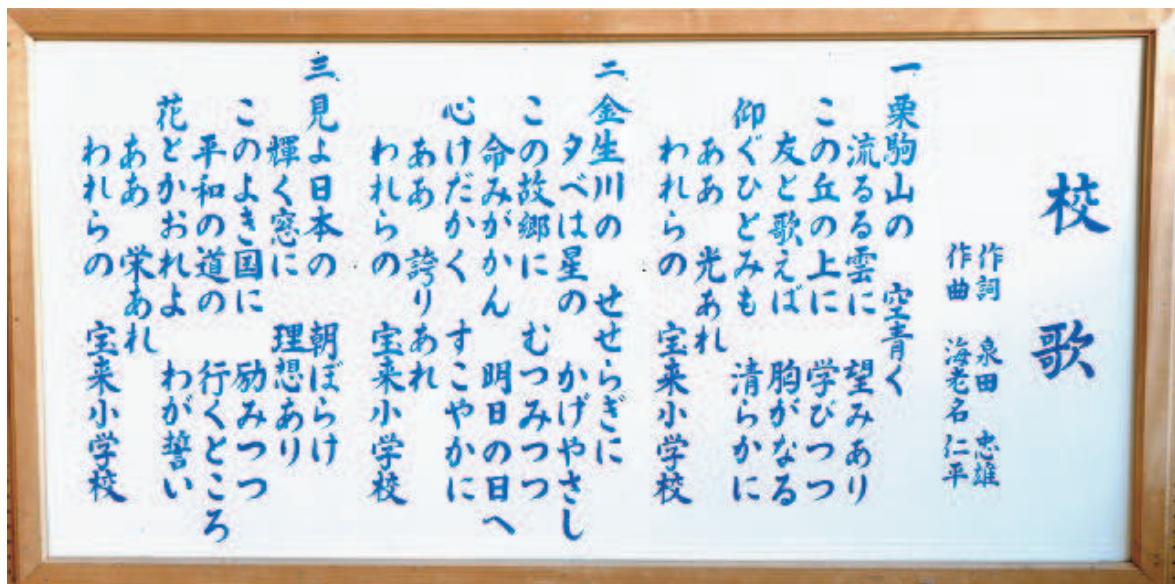 校歌
作詞 泉田 忠雄
作曲 海老名 仁平
一 栗駒山の 空青く
流るる雲に 望みあり
この丘の上に 学びつつ
友と歌えば 胸がなる
仰ぐひとみも 清らかに
ああ 光あれ
われらの 宝来小学校
二 金生川の せせらぎに
夕べは星の かげやさし
この故郷に むつみつつ
命みがかん 明日の日へ
心けだかく すこやかに
ああ 誇りあれ
われらの 宝来小学校
三 見よ日本の 朝ぼらけ
輝く窓に 理想あり
このよき国に 励みつつ
平和の道の 行くところ
花とかおれよ わが誓い
ああ 栄あれ
われらの 宝来小学校